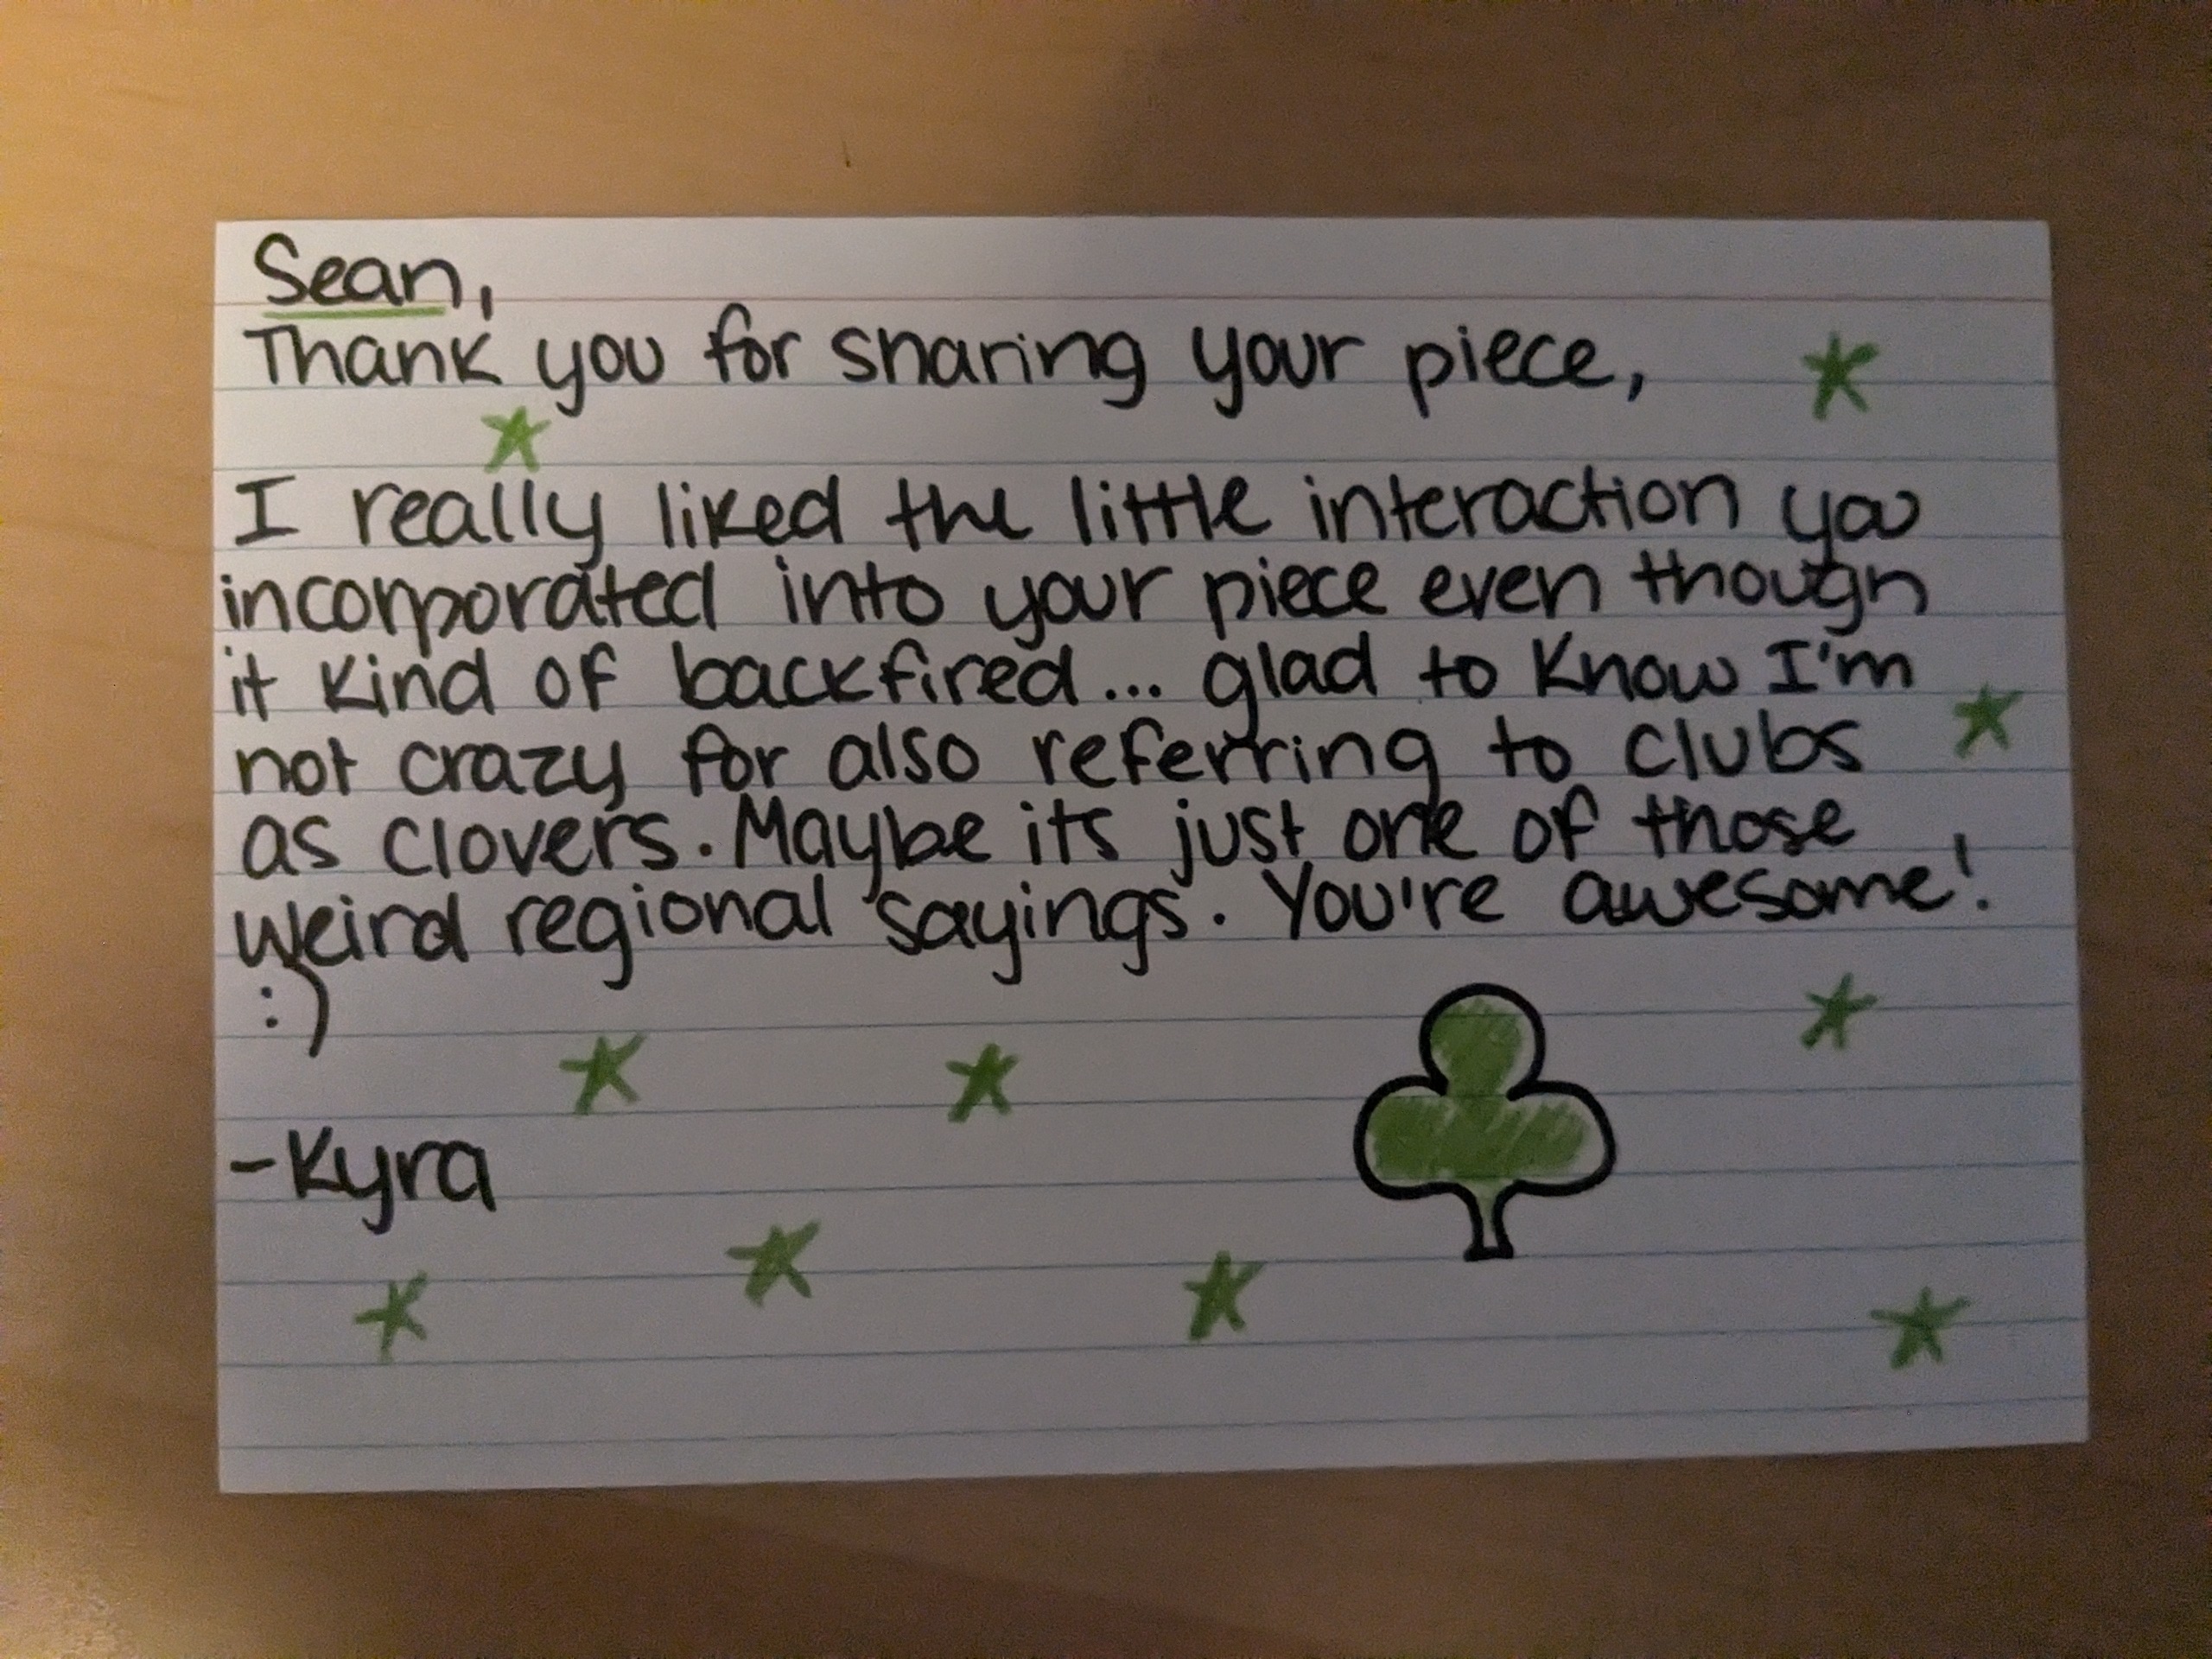 Sean,
Thank you for sharing your piece,
I really liked the little interaction you
incorporated into your piece even though
it kind of backfired... glad to know I'm
not crazy for also referring to clubs
as clovers. Maybe its just one of those
weird regional sayings. You're awesome!
:)
-Kyra